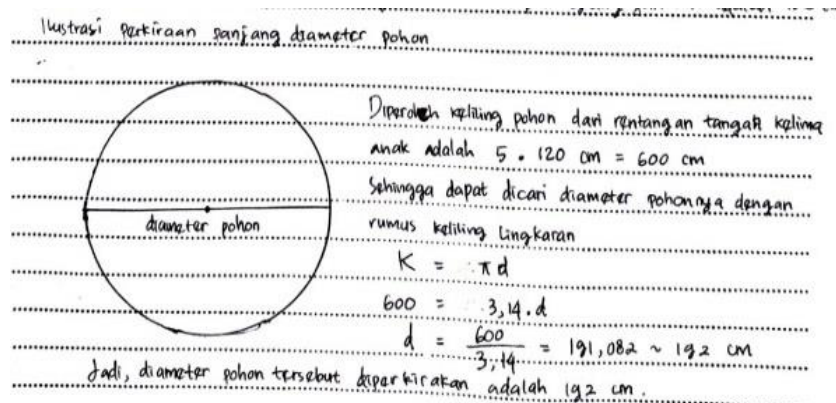 Ilustrasi perkiraan panjang diameter pohon
Diperoleh keliling pohon dari rentangan tangan kelima
anak adalah 5 . 120 cm = 600 cm
Sehingga dapat dicari diameter pohonnya dengan
rumus keliling lingkaran
diameter pohon
K = π d
600 = 3,14 . d
d = 600 / 3,14 = 191,082 ~ 192 cm
Jadi, diameter pohon tersebut diperkirakan adalah 192 cm.